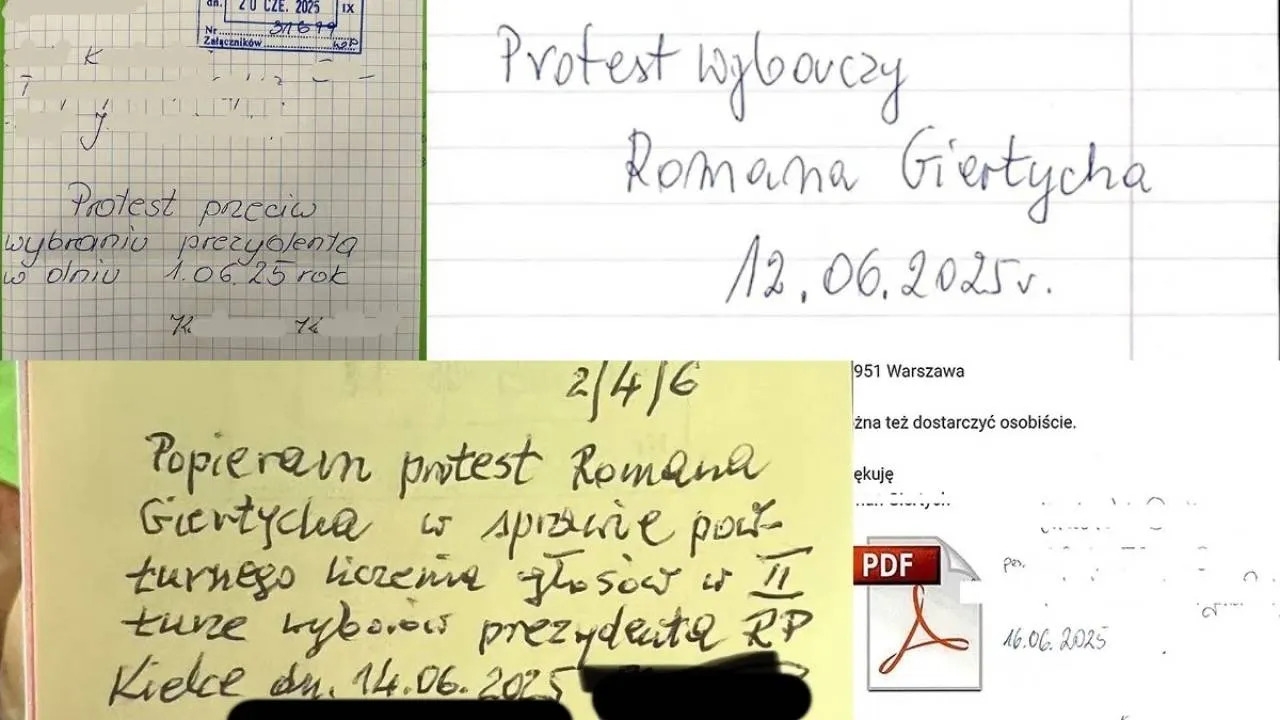 dn. 20 CZE. 2025 IX
Nr 31699
Załączników
K
J
Protest przeciw
wybraniu prezydenta
w dniu 1.06.25 rok
Protest wyborczy
Romana Giertycha
12.06.2025r.
2/4/6
Popieram protest Romana
Giertycha w sprawie pow-
turnego liczenia głosów w II
turze wyborów prezydenta RP
Kielce dn. 14.06.2025
951 Warszawa
żna też dostarczyć osobiście.
ękuję
PDF
16.06.2025